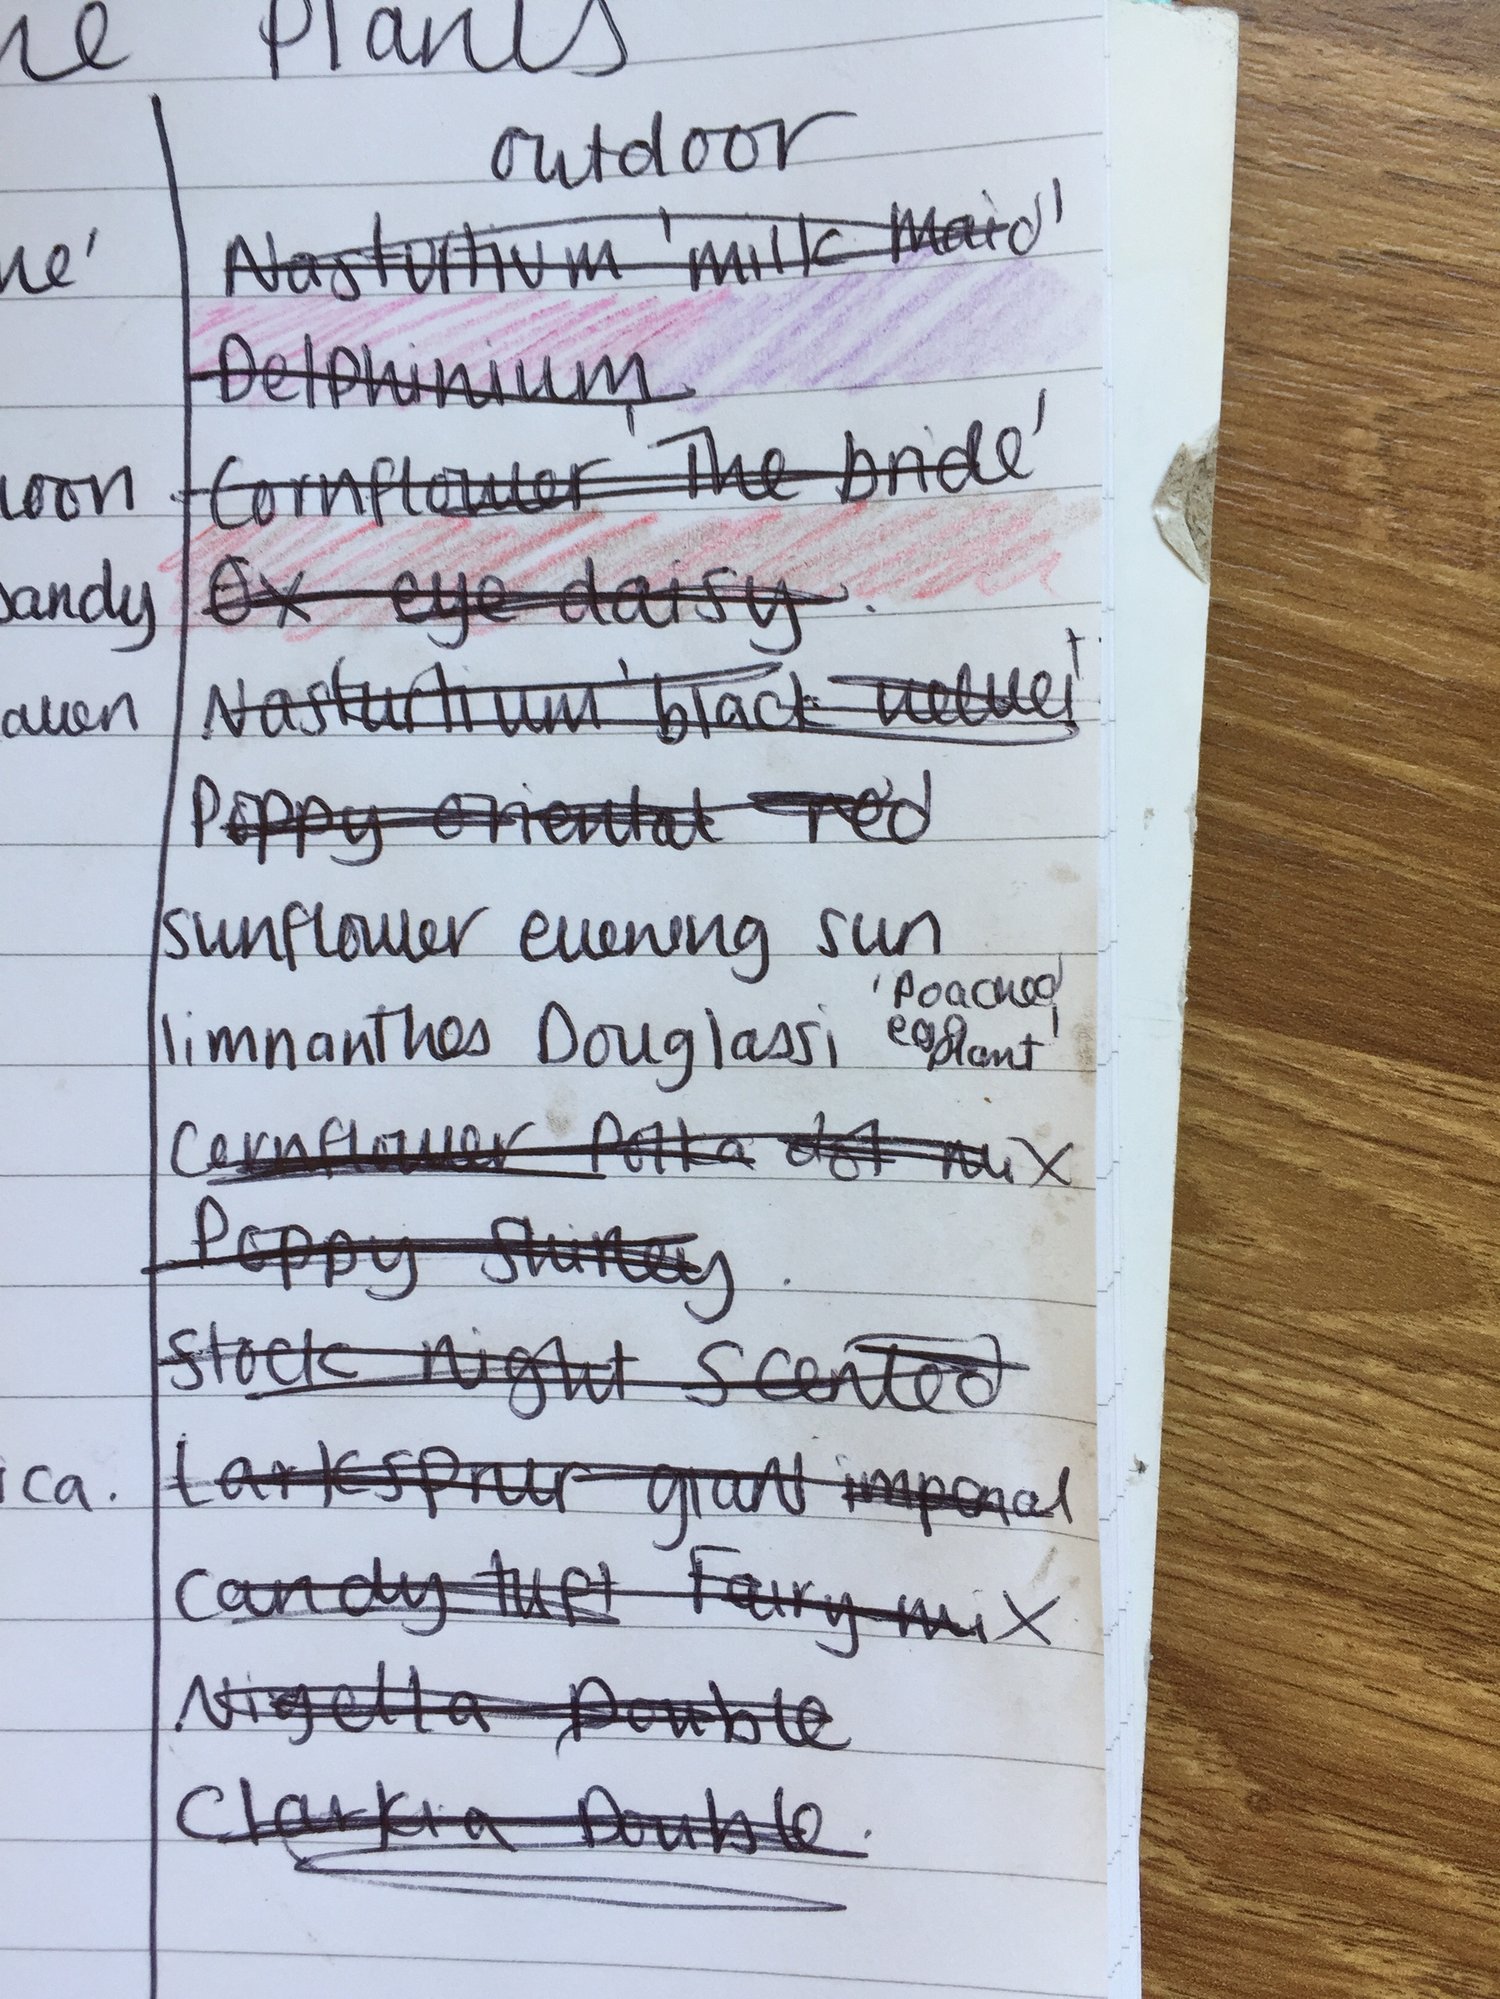 Plants
outdoor
Nasturtium 'milk Maid'
Delphinium
Cornflower 'The bride'
Ox eye daisy.
sandy
Nasturtium 'black velvet'
Poppy oriental red
sunflower evening sun
limnanthes Douglassi 'Poached
egg plant'
Cornflower Polka dot mix
Poppy Shirley.
Stock night Scented
ica. Larkspur giant imperial
Candy tuft Fairy mix
Nigella Double
Clarkia Double.